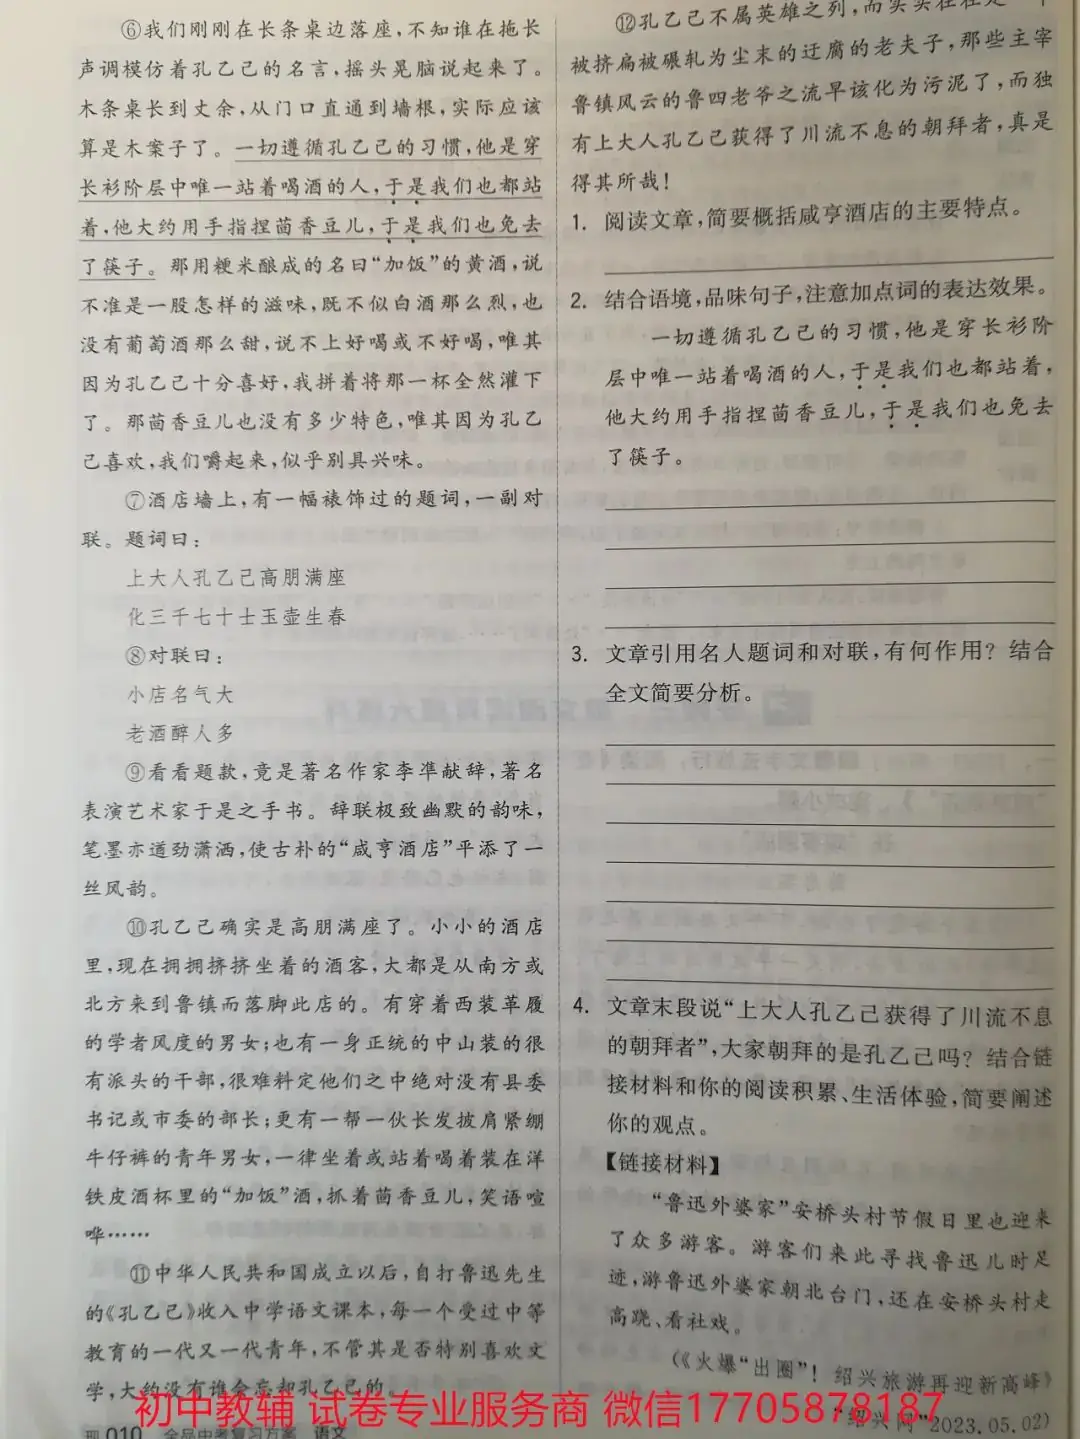 ⑥我们刚刚在长条桌边落座,不知谁在拖长
声调模仿着孔乙己的名言,摇头晃脑说起来了。
木条桌长到丈余,从门口直通到墙根,实际应该
算是木案子了。一切遵循孔乙己的习惯,他是穿
长衫阶层中唯一站着喝酒的人,于是我们也都站
着,他大约用手指捏茴香豆儿,于是我们也免去
了筷子。那用粳米酿成的名曰“加饭”的黄酒,说
不准是一股怎样的滋味,既不似白酒那么烈,也
没有葡萄酒那么甜,说不上好喝或不好喝,唯其
因为孔乙己十分喜好,我拼着将那一杯全然灌下
了。那茴香豆儿也没有多少特色,唯其因为孔乙
己喜欢,我们嚼起来,似乎别具兴味。
⑦酒店墙上,有一幅裱饰过的题词,一副对
联。题词曰:
上大人孔乙己高朋满座
化三千七十士玉壶生春
⑧对联曰:
小店名气大
老酒醉人多
⑨看看题款,竟是著名作家李凖献辞,著名
表演艺术家于是之手书。辞联极致幽默的韵味,
笔墨亦遒劲潇洒,使古朴的“咸亨酒店”平添了一
丝风韵。
⑩孔乙己确实是高朋满座了。小小的酒店
里,现在拥拥挤挤坐着的酒客,大都是从南方或
北方来到鲁镇而落脚此店的。有穿着西装革履
的学者风度的男女;也有一身正统的中山装的很
有派头的干部,很难料定他们之中绝对没有县委
书记或市委的部长;更有一帮一伙长发披肩紧绷
牛仔裤的青年男女,一律坐着或站着喝着装在洋
铁皮酒杯里的“加饭”酒,抓着茴香豆儿,笑语喧
哗……
⑪中华人民共和国成立以后,自打鲁迅先生
的《孔乙己》收入中学语文课本,每一个受过中等
教育的一代又一代青年,不管其是否特别喜欢文
学,大约没有谁会忘却孔乙己的。
010 全品中考复习方案 语文
⑫孔乙己不属英雄之列,而实实在在是一个
被挤扁被碾轧为尘末的迂腐的老夫子,那些主宰
鲁镇风云的鲁四老爷之流早该化为污泥了,而独
有上大人孔乙己获得了川流不息的朝拜者,真是
得其所哉!
1. 阅读文章,简要概括咸亨酒店的主要特点。
2. 结合语境,品味句子,注意加点词的表达效果。
一切遵循孔乙己的习惯,他是穿长衫阶
层中唯一站着喝酒的人,于是我们也都站着,
他大约用手指捏茴香豆儿,于是我们也免去
了筷子。
3. 文章引用名人题词和对联,有何作用？结合
全文简要分析。
4. 文章末段说“上大人孔乙己获得了川流不息
的朝拜者”,大家朝拜的是孔乙己吗？结合链
接材料和你的阅读积累、生活体验,简要阐述
你的观点。
【链接材料】
“鲁迅外婆家”安桥头村节假日里也迎来
了众多游客。游客们来此寻找鲁迅儿时足
迹,游鲁迅外婆家朝北台门,还在安桥头村走
高跷、看社戏。
(《火爆“出圈”！绍兴旅游再迎新高峰》
“绍兴网”2023.05.02)
初中教辅 试卷专业服务商 微信17705878187